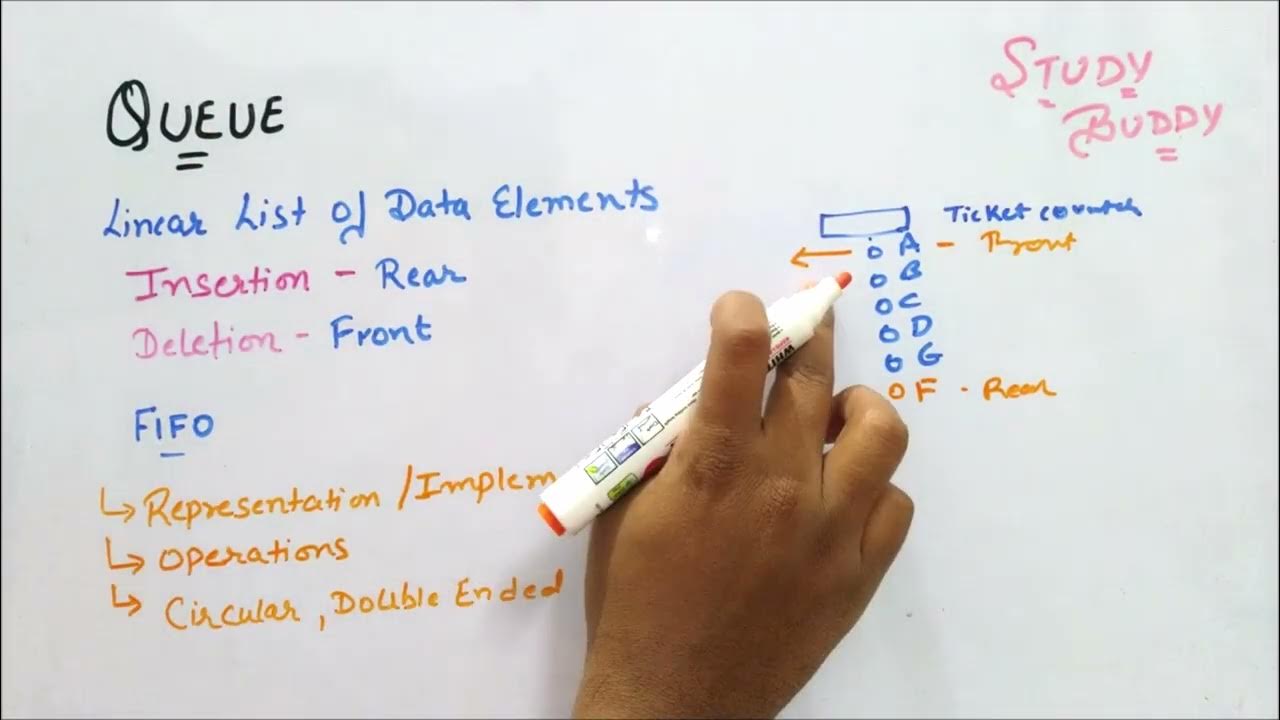 QUEUE
STUDY
BUDDY
Linear List of Data Elements
Insertion - Rear
Deletion - Front
FIFO
↳ Representation / Implem
↳ Operations
↳ Circular, Double Ended
Ticket counter
A - Front
B
C
D
G
F - Rear